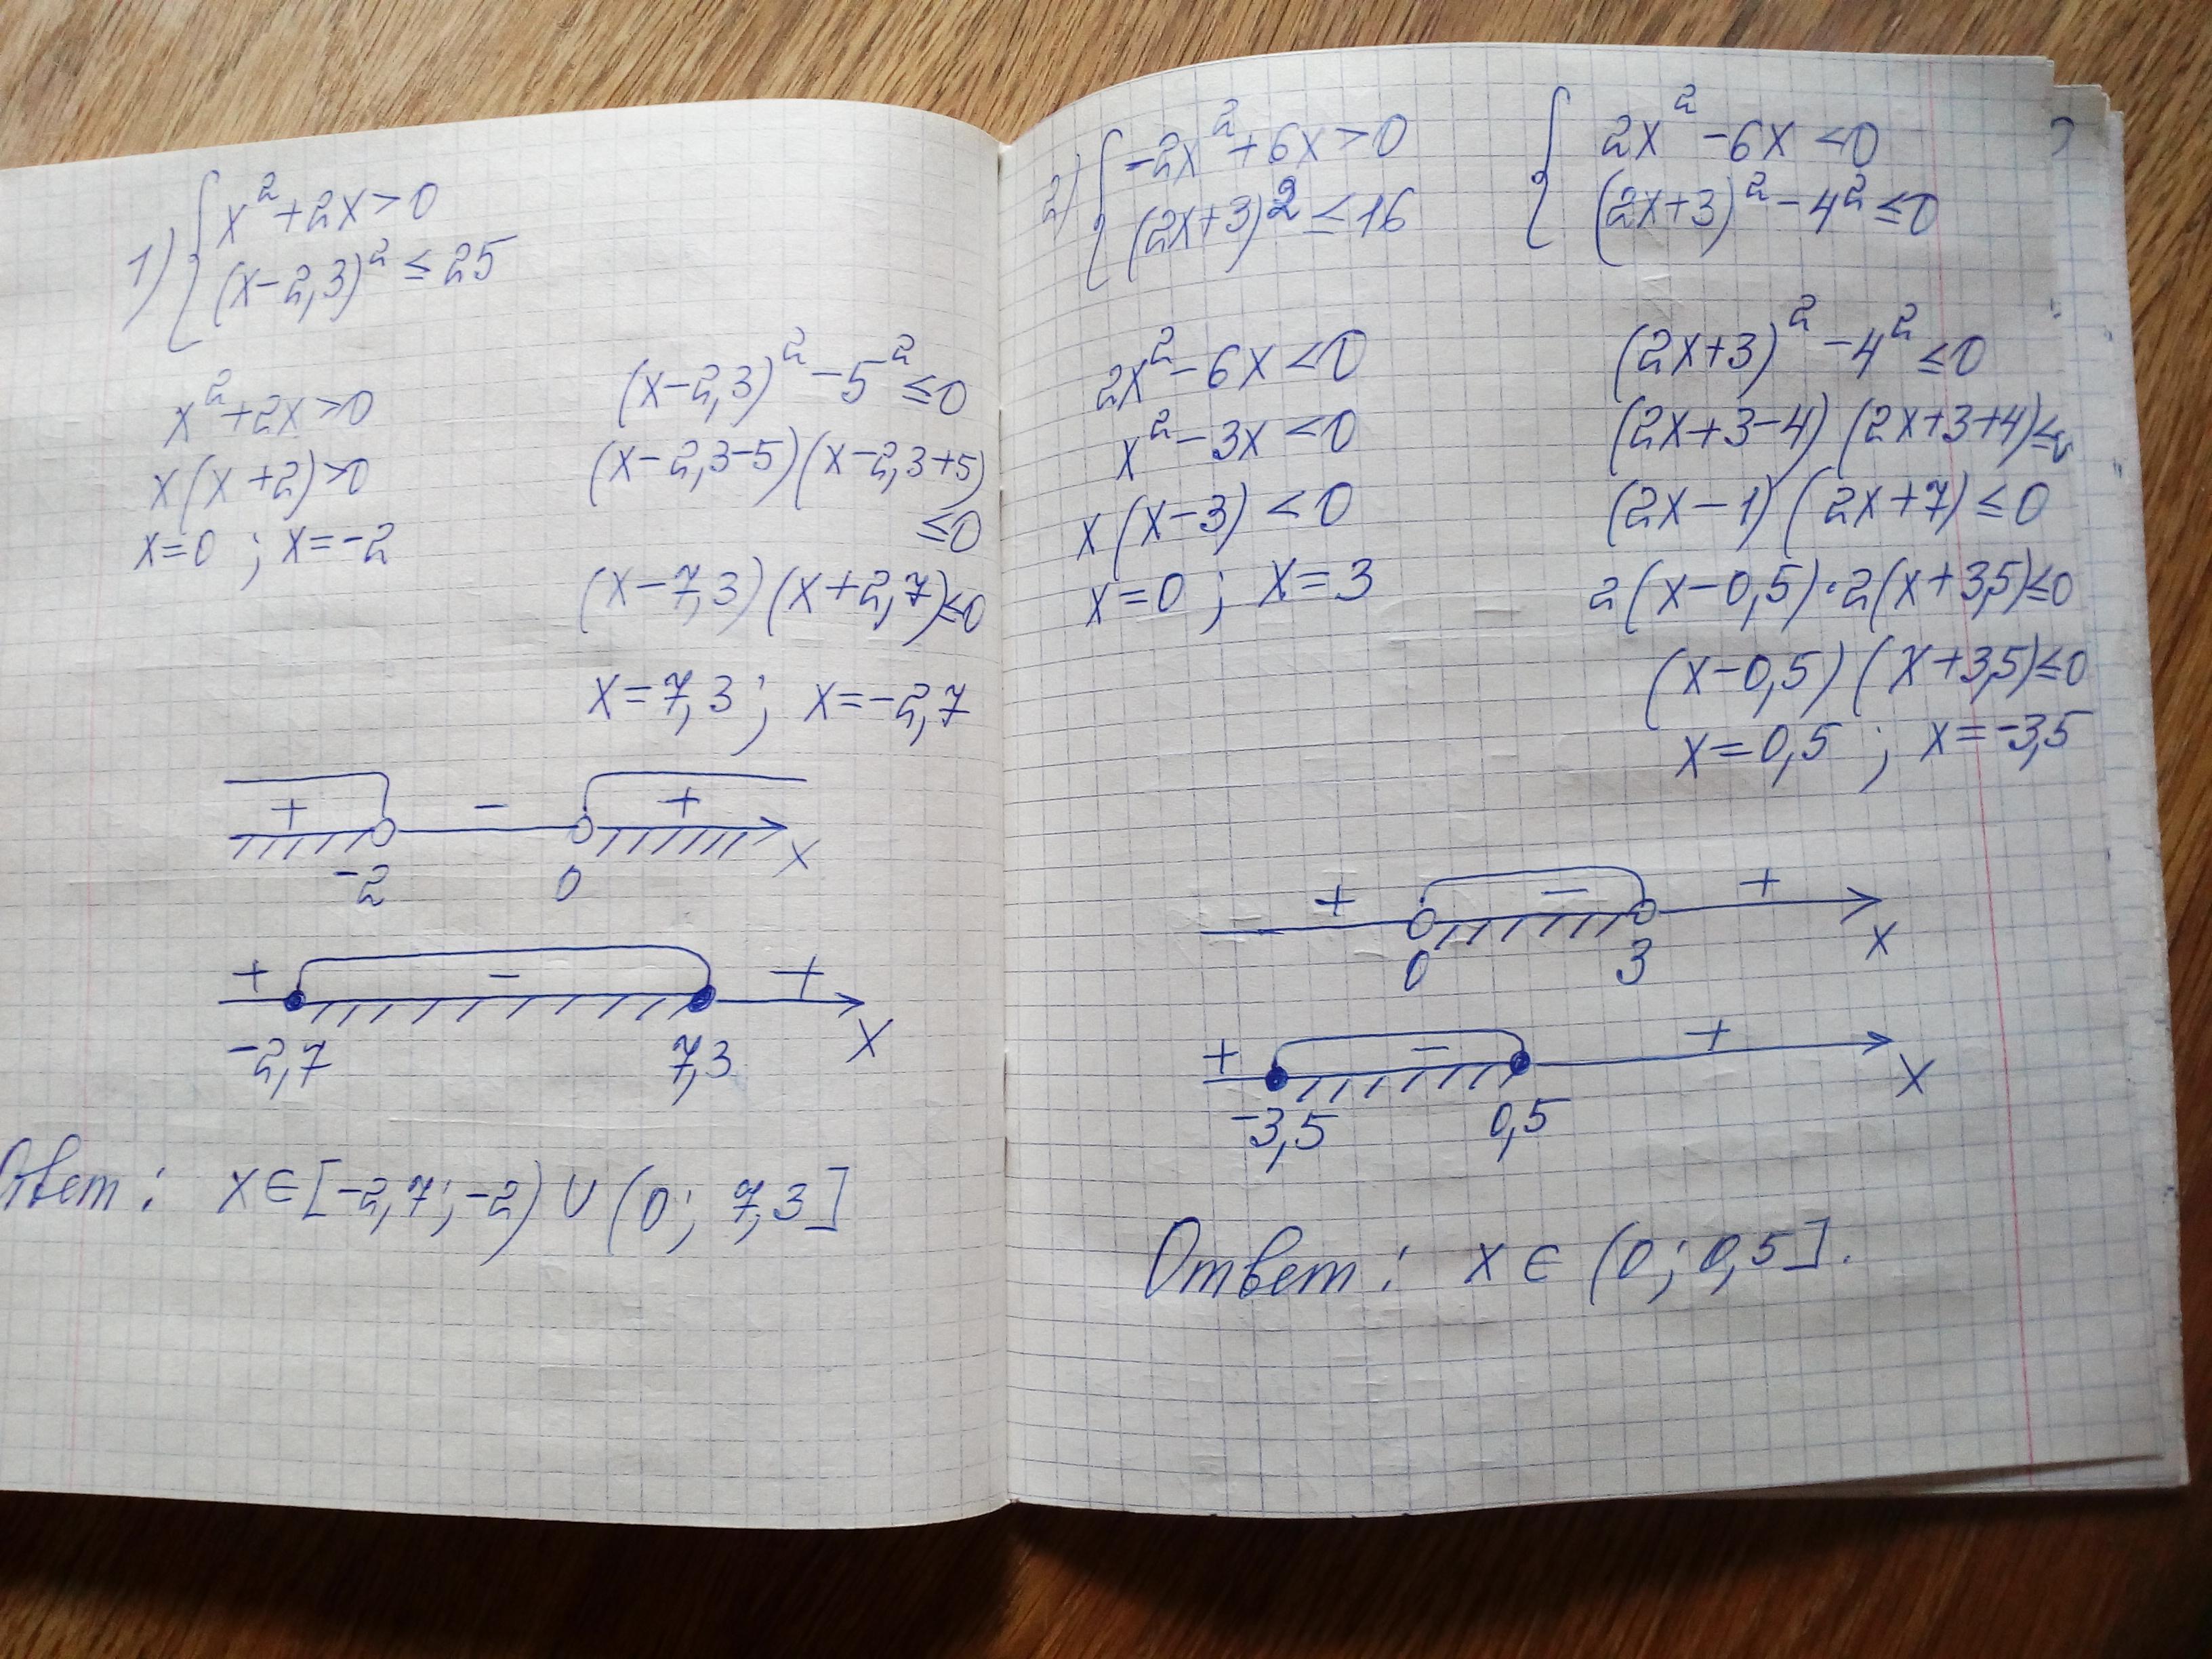 1) { x² + 2x > 0
(x - 2,3)² ≤ 25
x² + 2x > 0
x(x + 2) > 0
x = 0 ; x = -2
(x - 2,3)² - 5² ≤ 0
(x - 2,3 - 5)(x - 2,3 + 5)
≤ 0
(x - 7,3)(x + 2,7) ≤ 0
x = 7,3 ; x = -2,7
+ - +
-2 0 x
+ - +
-2,7 7,3 x
Ответ: x ∈ [-2,7; -2) ∪ (0; 7,3]
2) { -2x² + 6x > 0
(2x + 3)² ≤ 16
{ 2x² - 6x < 0
(2x + 3)² - 4² ≤ 0
2x² - 6x < 0
x² - 3x < 0
x(x - 3) < 0
x = 0 ; x = 3
(2x + 3)² - 4² ≤ 0
(2x + 3 - 4)(2x + 3 + 4) ≤ 0
(2x - 1)(2x + 7) ≤ 0
2(x - 0,5) · 2(x + 3,5) ≤ 0
(x - 0,5)(x + 3,5) ≤ 0
x = 0,5 ; x = -3,5
+ - +
0 3 x
+ - +
-3,5 0,5 x
Ответ: x ∈ (0; 0,5].